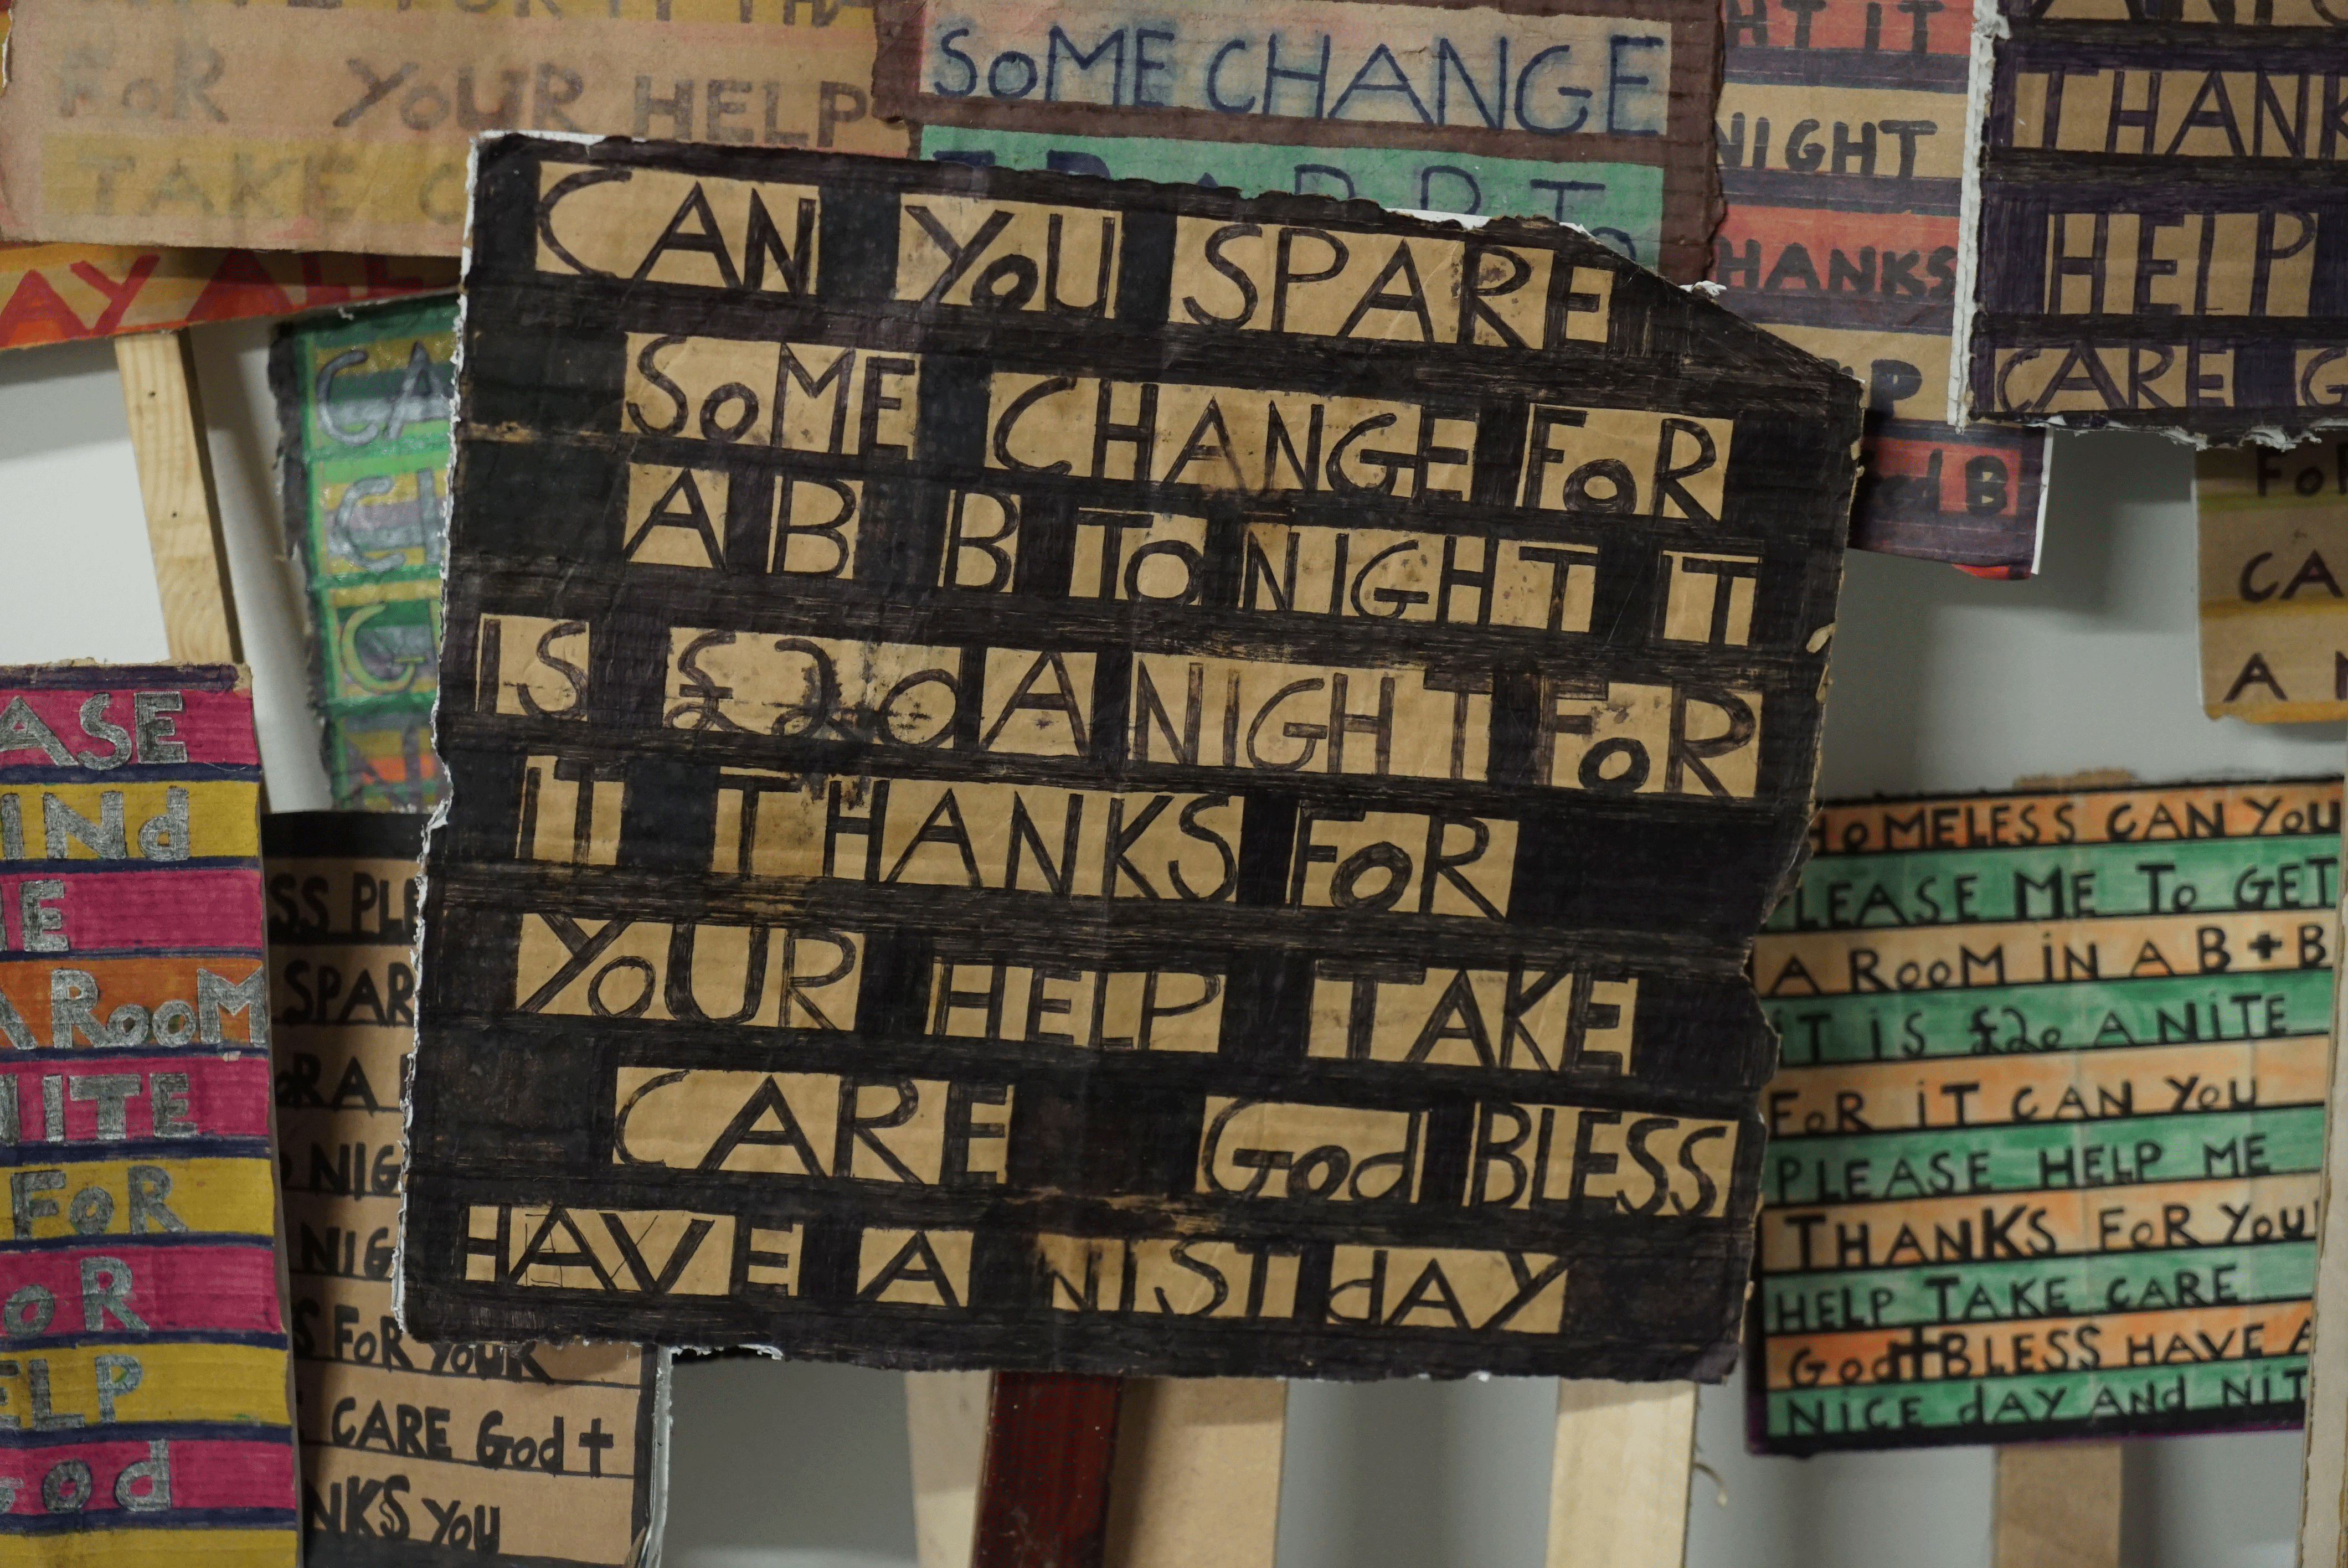 FOR YOUR HELP
TAKE
AY ALL
SOME CHANGE
HT IT
NIGHT
HANKS
THANK
HELP
CARE G
CAN YOU SPARE
SOME CHANGE FOR
A B B TONIGHT IT
IS £20 A NIGHT FOR
IT THANKS FOR
YOUR HELP TAKE
CARE God BLESS
HAVE A NIST dAY
CA
ASE
INd
E
A ROOM
NITE
FOR
OR
ELP
God
SS PLE
SPAR
ORA
NIG
NIG
S FOR YOUR
CARE God †
NKS YOU
FOR
CA
A N
HOMELESS CAN YOU
PLEASE ME To GET
A ROOM iN A B + B
iT iS £20 A NiTE
FOR iT CAN YOU
PLEASE HELP ME
THANKS FOR YOU
HELP TAKE CARE
God † BLESS HAVE A
NiCE dAY ANd NiT